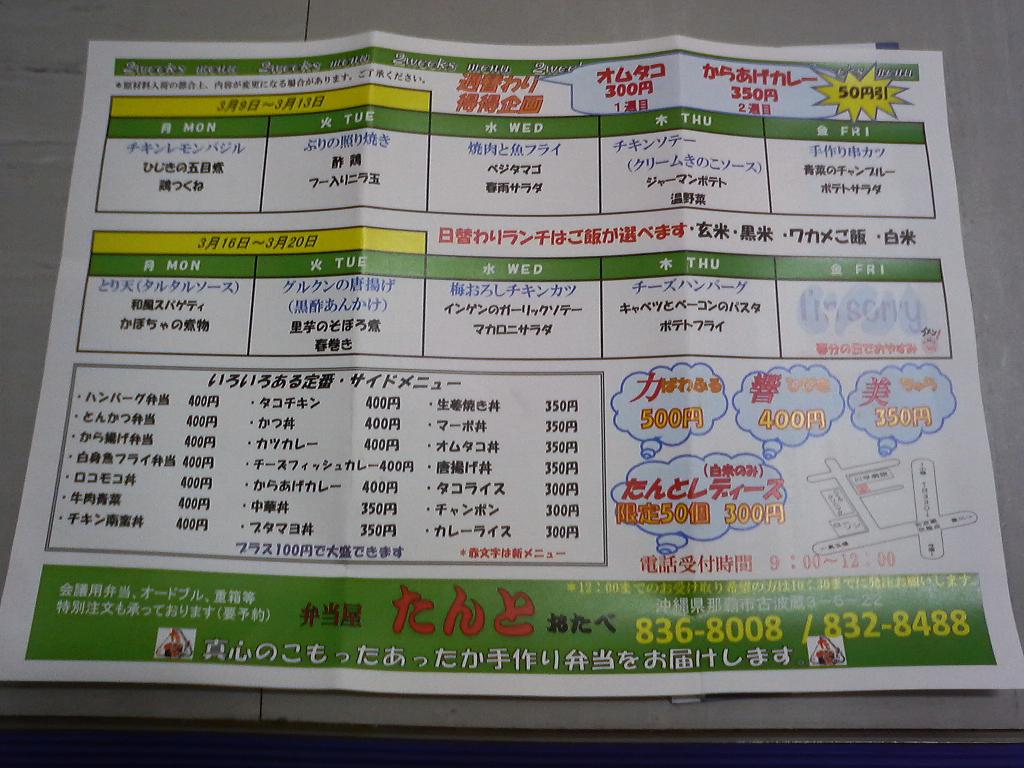 2weeks menu 2weeks menu 2week
*原材料入荷の都合上、内容が変更になる場合があります。ご了承ください。
週替わり
得得企画
オムタコ
300円
1週目
からあげカレー
350円
2週目
50円引
3月9日～3月13日
月 MON 火 TUE 水 WED 木 THU 金 FRI
チキンレモンバジル
ひじきの五目煮
鶏つくね
ぶりの照り焼き
酢鶏
フー入りニラ玉
焼肉と魚フライ
ベジタマゴ
春雨サラダ
チキンソテー
(クリームきのこソース)
ジャーマンポテト
温野菜
手作り串カツ
青菜のチャンプルー
ポテトサラダ
日替わりランチはご飯が選べます・玄米・黒米・ワカメご飯・白米
3月16日～3月20日
月 MON 火 TUE 水 WED 木 THU 金 FRI
とり天(タルタルソース)
和風スパゲティ
かぼちゃの煮物
グルクンの唐揚げ
(黒酢あんかけ)
里芋のそぼろ煮
春巻き
梅おろしチキンカツ
インゲンのガーリックソテー
マカロニサラダ
チーズハンバーグ
キャベツとベーコンのパスタ
ポテトフライ
I'm sorry
春分の日でおやすみ
いろいろある定番・サイドメニュー
・ハンバーグ弁当 400円
・とんかつ弁当 400円
・から揚げ弁当 400円
・白身魚フライ弁当 400円
・ロコモコ丼 400円
・牛肉青菜 400円
・チキン南蛮丼 400円
・タコチキン 400円
・かつ丼 400円
・カツカレー 400円
・チーズフィッシュカレー400円
・からあげカレー 400円
・中華丼 350円
・ブタマヨ丼 350円
・生姜焼き丼 350円
・マーボ丼 350円
・オムタコ丼 350円
・唐揚げ丼 350円
・タコライス 300円
・チャンポン 300円
・カレーライス 300円
プラス100円で大盛できます
*赤文字は新メニュー
力ぱわふる
500円
響ひびき
400円
美ちゅら
350円
(白米のみ)
たんとレディース
限定50個 300円
電話受付時間 9:00～12:00
*12:00までのお受け取り希望の方は10:30までに発注お願いします。
会議用弁当、オードブル、重箱等
特別注文も承っております(要予約)
弁当屋 たんと おたべ
沖縄県那覇市古波蔵3-6-22
836-8008 / 832-8488
真心のこもったあったか手作り弁当をお届けします。